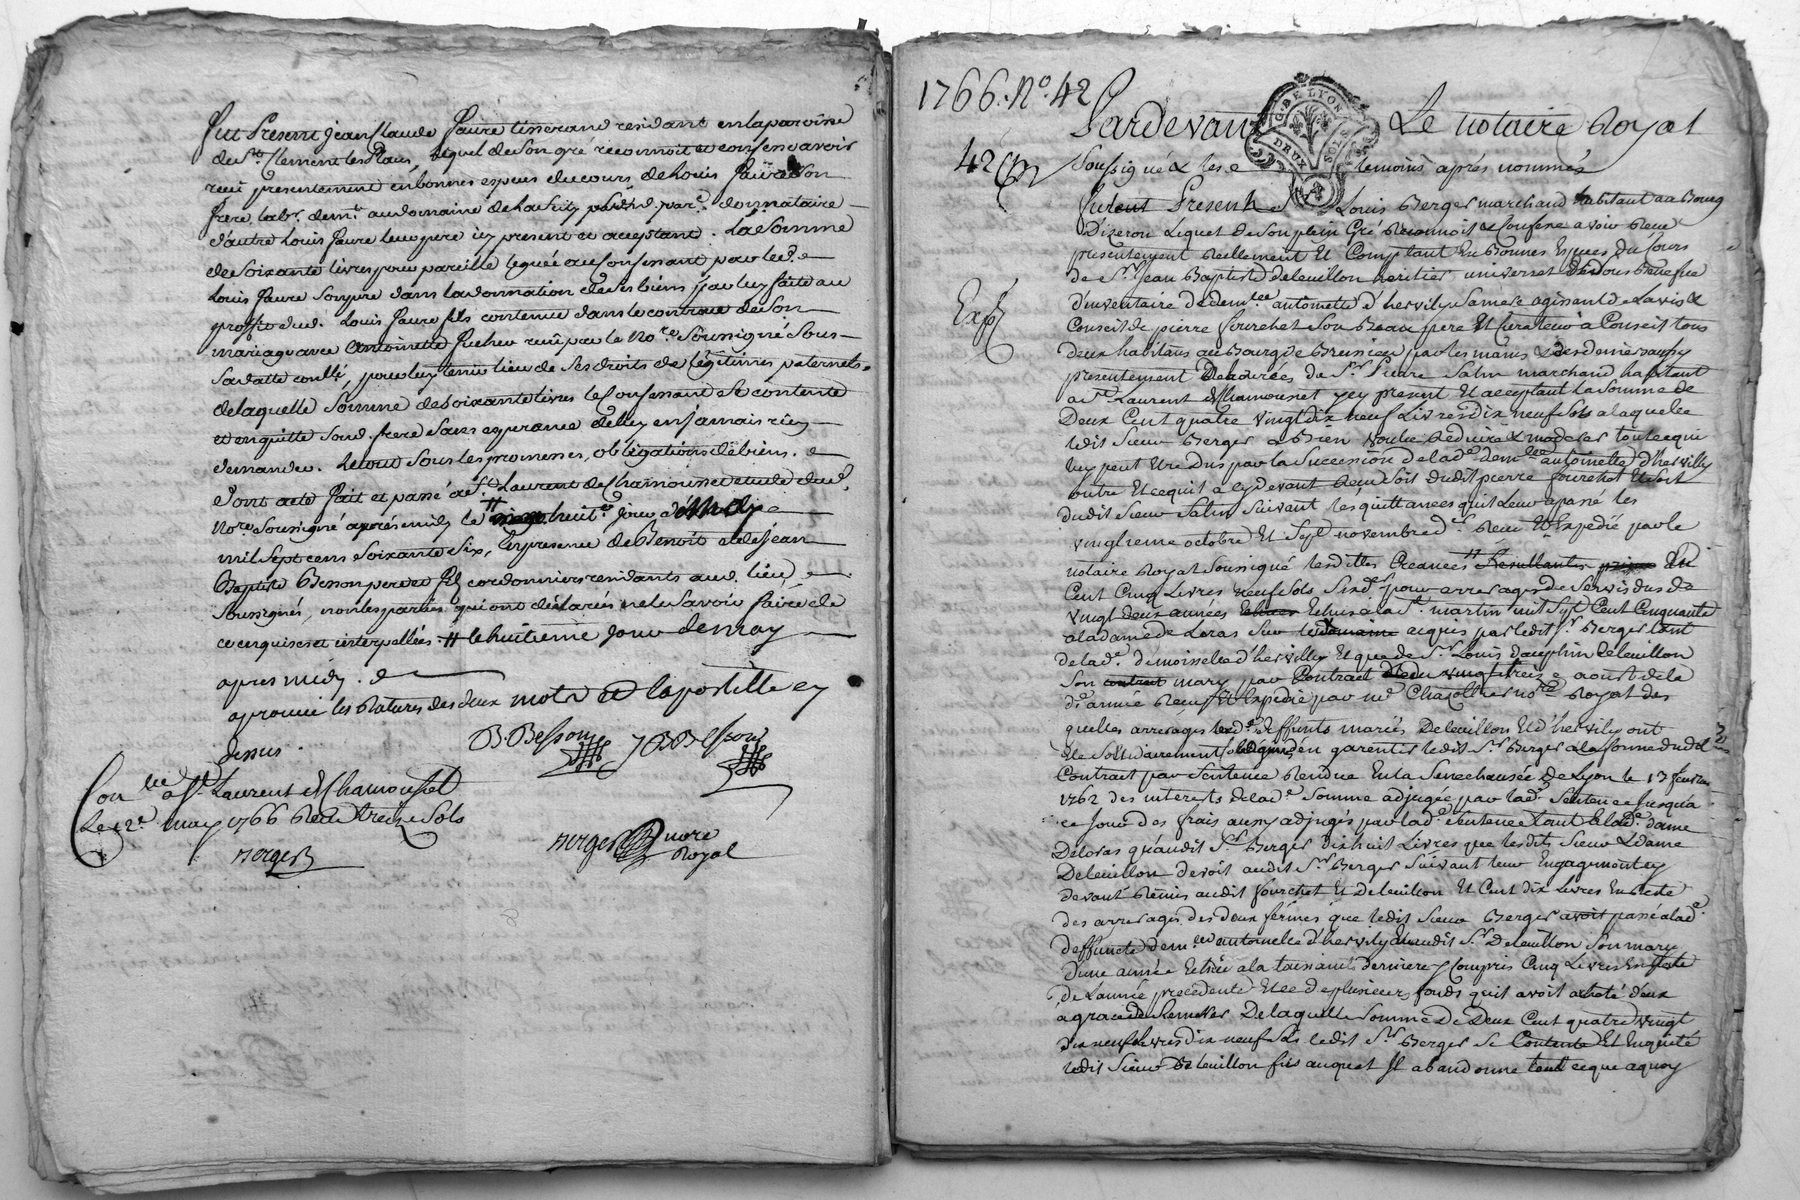 Fut Present Jean Claude Faure tisserand residant en la paroisse
de St. Clement les Places, lequel de son gré reconnoit et confesse avoir
receu presentement en bonnes especes du cours de Louis Faure son
frere, labr. demt. au domaine de donnataire
d'autre Louis Faure leur pere icy present et acceptant. La somme
de soixante livres pour pareille leguée au confessant par led.
Louis Faure son pere dans la donnation de ses biens par luy faite au
proffit dud. Louis Faure fils contenue dans le contract de son
mariage avec Antoinette receu par le nore. soussigné sous
sa datte conllé, pour luy tenir lieu de ses droits de légitimes paternels
de laquelle somme de soixante livres le confessant se contente
et en quitte sond. frere sans esperance de luy en jamais rien
demander. Le tout sous les promesses, obligations de biens.
Dont acte fait et passé a St. Laurent de Chamousset etude dud.
nore. soussigné après midy le huite. jour de may
mil sept cens soixante six, en presence de Benoit et de Jean
Baptiste Besson pere et fils cordonniers residants aud. lieu,
soussignés, non les parties qui ont déclarés ne le savoir faire de
ce enquises et interpellées # le huitieme jour de may
apres midy.
aprouvé les ratures des deux mots et la postille cy
dessus.
B. Besson J B Besson
Conlle. a St. Laurent de Chamousset
Le 12e. may 1766 Receu treize sols
Berger
Berger nore
Royal
1766. No. 42
Pardevant Le notaire Royal
42e
G. DE LYON
DEUX SOLS
Soussigné & les temoins après nommés
Furent Present Sr. Louis Berger marchand habitant au Bourg
D'izeron Lequel de son plein Gré Reconnoit & Confesse avoir Receu
presentement Reellement Et Comptant En Bonnes Especes du Cours
de Sr. Jean Baptiste Deleuillon heritier universel sous Benefice
d'inventaire de demlle. antoinette d'hervilly sa mere agissant de Lavis &
Conseil de pierre fourchet son Beau frere Et Conseil tous
Exp
deux habitans au Bourg de Brussieu par les mains & des deniers
presentement Delivrées de Sr. Pierre Salin marchand habitant
a St. Laurent de Chamousset icy present Et acceptant la somme de
Deux Cent quatre vingt dix neuf Livres dix neuf sols a laquelle
ledit sieur Berger a Bien voulu Reduire & moderer tout ce qui
luy peut Etre Dus par la Succession de lade. demlle. antoinette d'hervilly
outre Et ce quil a cy devant Receu soit dudit pierre fourchet Et soit
dudit sieur Salin suivant les quittances quil leur a passé les
vingtieme octobre Et Sept novembre d. Receu Et Expedié par le
notaire Royal soussigné lesdittes Creances Resultantes De
Cent Cinq Livres neuf sols Six d. pour arrerages de Servis dus de
vingt deux années Echus a la St. martin mil Sept Cent Cinquante
a la dame de Loras sur le domaine acquis par ledit Sr. Berger tant
de lade. demoiselle d'hervilly Et que de Sr. Louis Dauphin Deleuillon
son mary par Contract du vingt treize aoust de la
de. année Receu Et Expedié par me. Chazolle nore Royal des
quelles arrerages lesds. deffunts mariés Deleuillon Et d'hervily ont
Ete solidairement obligés en garentir ledit Sr. Berger a la forme dudit
Contract par Sentence Rendue En la Senechaussée de Lyon le 17 fevrier
1762 des interets de lade. somme adjugée par lade. Sentence Jusqu'a
ce Jour des frais aussy adjugés par lade. Sentence tant a lade. dame
Deloras qu'audit Sr. Berger dix huit Livres que lesdits Sieur & dame
Deleuillon devoit audit Sr. Berger suivant leur Engagement cy
devant Remis audit fourchet Et Deleuillon Et Cent dix Livres En Reste
des arrerages des deux fermes que ledit sieur Berger avoit passé a lade.
deffuncte demlle. antoinette d'hervily Et audit Sr. Deleuillon son mary
d'une année Echue a la toussaints derniere y Compris Cinq Livres En Reste
de L'année precedente Et ce de plusieurs fonds quil avoit acheté d'eux
a grace de Remeré De laquelle somme de Deux Cent quatre vingt
dix neuf Livres dix neuf sols ledit Sr. Berger se Contente Et En quitte
ledit sieur Deleuillon fils auquel il abandonne tout ce que a quoy